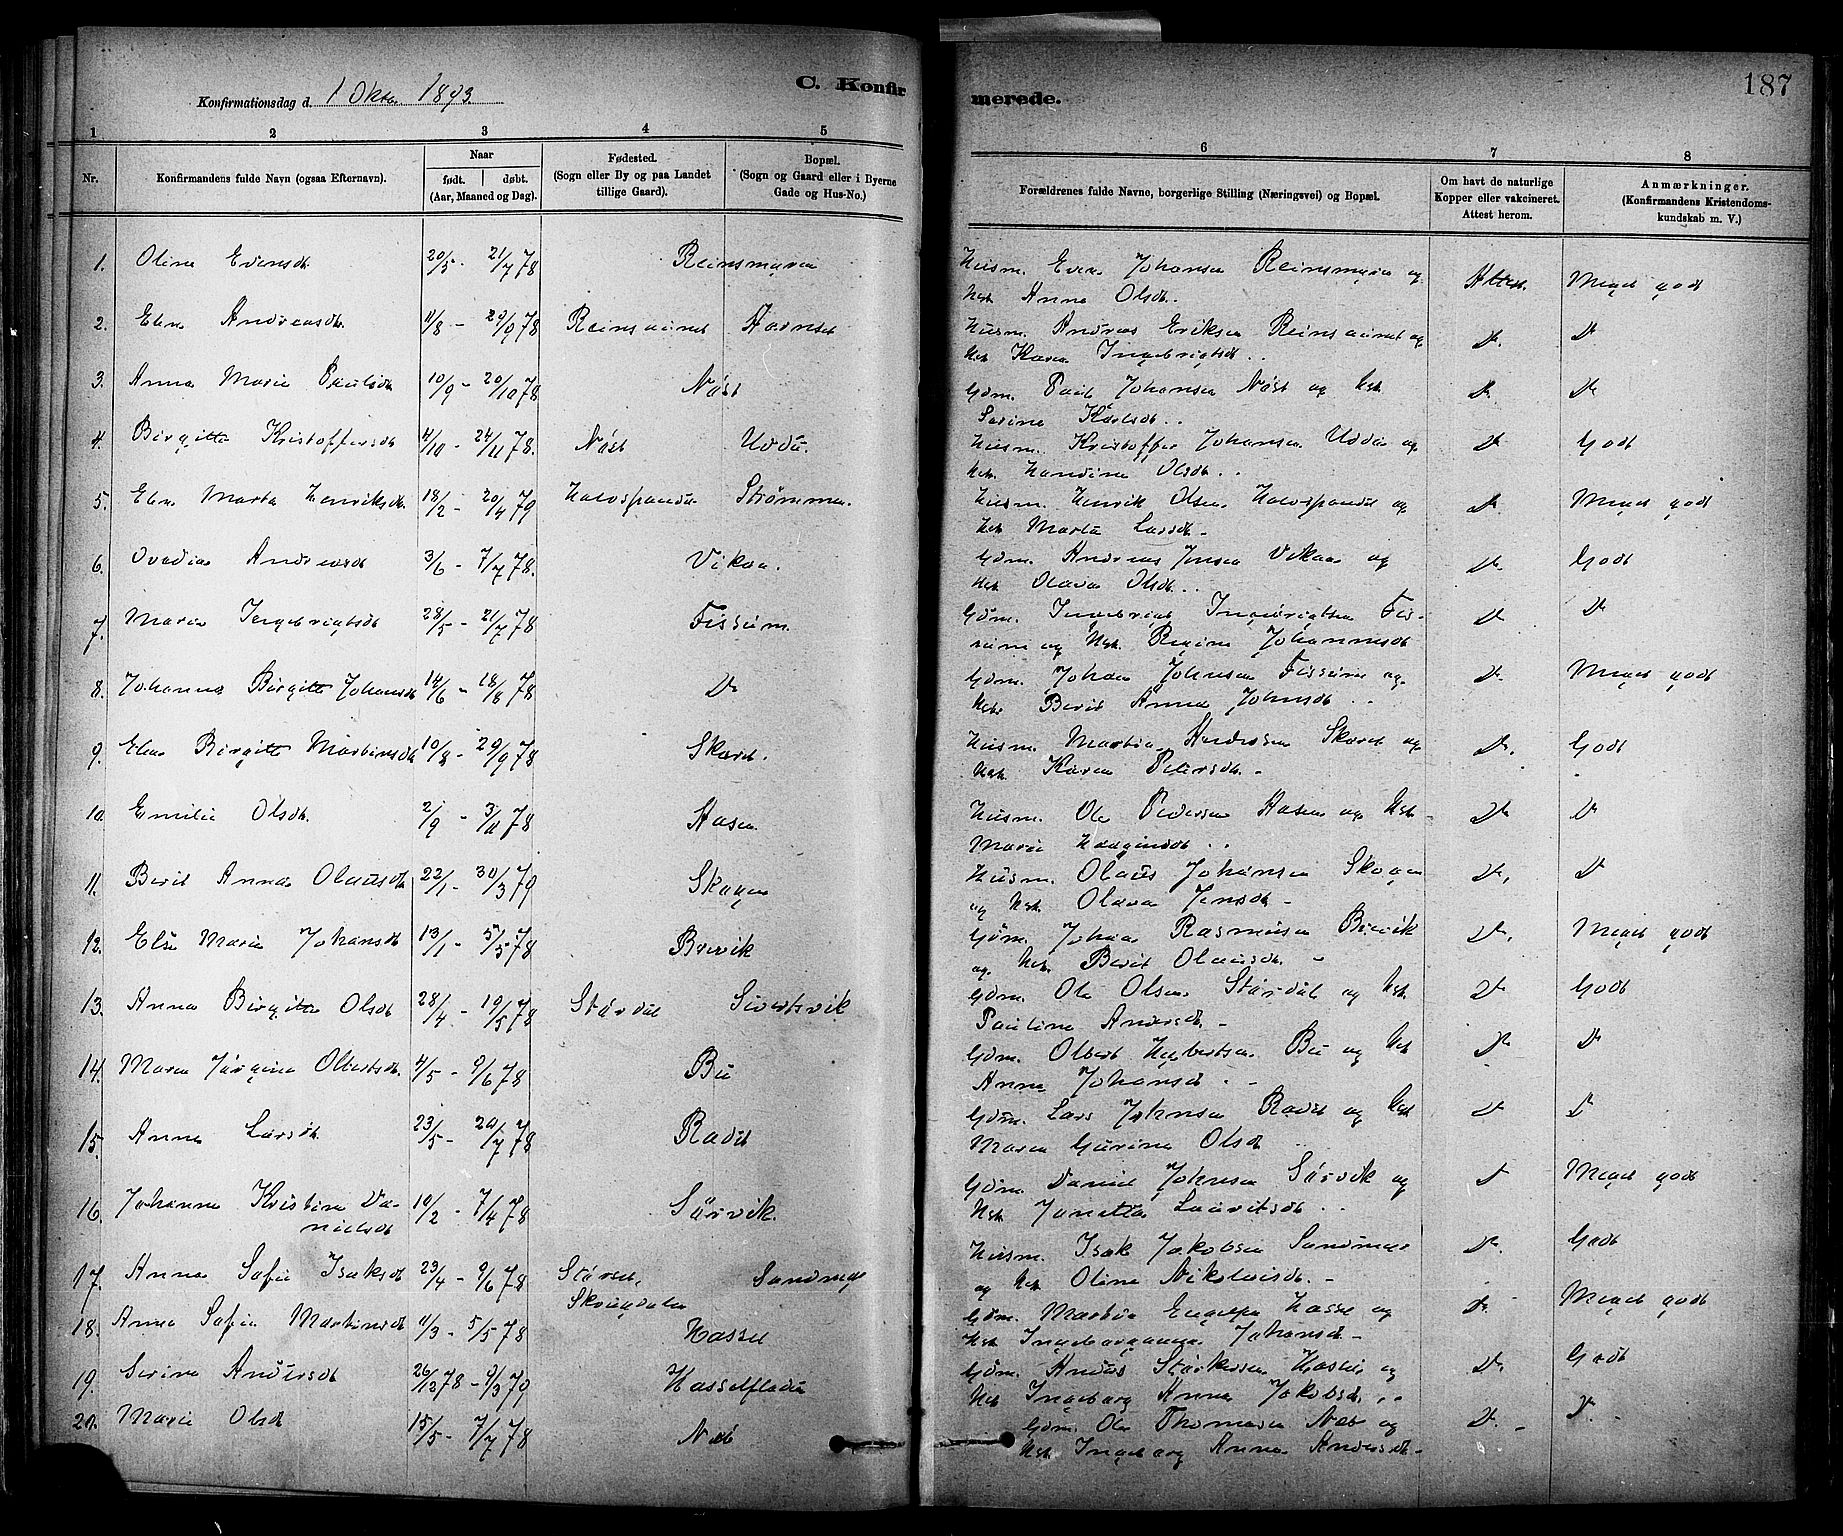 Konfirmationsdag d. 1 Oktr 1893
C. Konfir
merede.
187
1 2 3 4 5 6 7 8
Nr.
Konfirmandens fulde Navn (ogsaa Efternavn).
Naar
født. døbt.
(Aar, Maaned og Dag).
Fødested.
(Sogn eller By og paa Landet
tillige Gaard).
Bopæl.
(Sogn og Gaard eller i Byerne
Gade og Hus-No.)
Forældrenes fulde Navne, borgerlige Stilling (Næringsvei) og Bopæl.
Om havt de naturlige
Kopper eller vakcineret.
Attest herom.
Anmærkninger.
(Konfirmandens Kristendoms-
kundskab m. V.)
1. Oline Evensdt 20/5 - 21/7 78 Reinsmyra Husm. Even Johansen Reinsmyra og Attest. Meget godt
Hst. Anna Olsdt.
2. Elen Andreasdt. 11/8 - 29/9 78 Reinsaunet Husm. Andreas Eriksen Reinsaunet og Do Do
Hst. Karen Ingebrigtsdt.
3. Anna Marie Paulsdt 10/9 - 20/10 78 Nøst Gdm. Paul Johansen Nøst og Hst. Do Do
Serine Karlsdt.
4. Birgitte Kristoffersdt 4/10 - 24/11 78. Nøst Uddu. Husm. Kristoffer Johansen Uddu og Do Godt
Hst. Olsdt.
5. Elen Marta Henriksdt. 18/2 - 20/4 79 Strømmen. Husm. Henrik Olsen og Do. Meget godt
Hst Marta Larsdt.
6. Ovedia Andreasdt 3/6 - 7/7 78. Vikan. Gdm. Andreas Jensen Vikan og Do. Godt
Hst. Olava Olsdt.
7. Maria Ingebrigtsdt 28/5 - 21/7 78 Fissum. Gdm. Ingebrigt Ingebrigtsen Fis- Do Do
sum og Hst. Regine Johannesdt
8. Johanna Birgitte Johansdt 14/6 - 18/8 78 Do Gdm. Johan Johnsen Fissum og Do. Meget godt
Hst. Berit Anna Johnsdt.
9. Elen Birgitte Martinsdt 10/8 - 29/9 78 Skaret. Husm. Martin Andresen Skaret og Do. Godt
Hst. Karen Petersdt.
10. Emilie Olsdt. 2/9 - 3/11 78 Aasen Husm. Ole Pedersen Aasen og Hst. Do Do
Marie Haagensdt.
11. Berit Anna Olausdt 22/1 - 30/3 79 Skogen Husm. Olaus Johansen Skogen Do. Do
og Hst. Olava Jensdt -
12. Else Marie Johansdt 13/1 - 5/5 78 Brevik Gdm. Johan Rasmusen Brevik Do. Meget godt
og Hst. Berit Olausdt. -
13. Anna Birgitte Olsdt 28/4 - 19/5 78 Størdal Sivertsvik Gdm. Ole Olsen Størdal og Hst. Do Godt
Pauline Andersdt. -
14. Maren Jørgine Olbertsdt. 4/5 - 9/6 78 Bu Gdm. Olbert Bu og Hst Do Do
Anne Johansdt.
15. Anna Larsdt. 23/5 - 20/7 78 Radet Gdm. Lars Johnsen Radet og Hst Do Do
Maren Gurine Olsdt
16. Johanna Kristine Da- 10/2 - 7/4 78 Sørvik. Gdm. Daniel Johnsen Sørvik og Do Meget godt
nielsdt Hst. Janetta Lauritsdt.
17. Anna Sofie Isaksdt 23/4 - 9/6 78 Størdal, Husm. Isak Jakobsen Do. Godt
og Hst. Oline Nikolaisdt. -
18. Anna Sofie Martinsdt 11/3 - 5/5 78 Hassel Gdm. Martin og Do. Meget godt
Hst. Johansdt -
19. Serine Andersdt 26/12 78 - 9/3 79 Hasselflada Gdm. Anders og Do. Godt
Hst Ingeborg Anna Jakobsdt.
20. Marie Olsdt 15/5 - 7/7 78 Næs Gdm. Ole Thomasen Næs og Do. Do.
Hst Ingeborg Anna Andersdt -